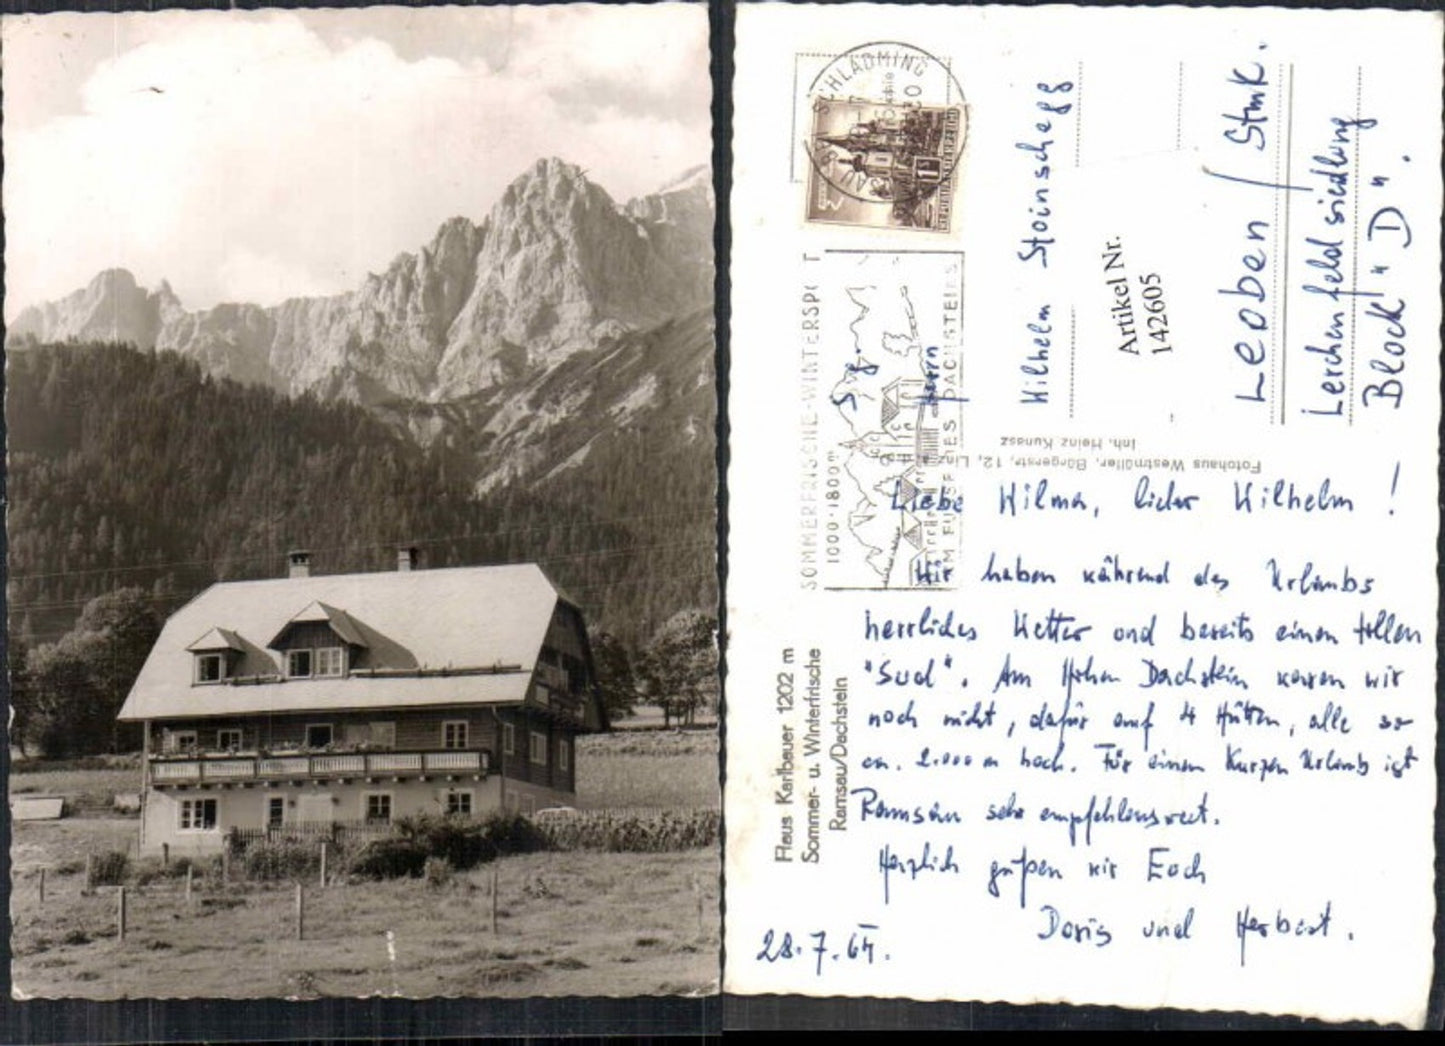 Haus Karlbauer 1202 m
Sommer- u. Winterfrische
Ramsau/Dachstein
SCHLADMING
RAMSAU
REPUBLIK ÖSTERREICH
SOMMERFRISCHE-WINTERSPORT
1000-1800m
AM FUSSE DES DACHSTEINS
S. g.
Herrn
Wilhelm Stoinschegg
Leoben / Stmk.
Lerchenfeldsiedlung
Block "D".
Artikel Nr.
142605
Fotohaus Westmüller, Bürgerstr. 12, Linz
Inh. Heinz Kunasz
Liebe Wilma, lieber Wilhelm!
Wir haben während des Urlaubs
herrliches Wetter und bereits einen tollen
"Sud". Am Hohen Dachstein waren wir
noch nicht, dafür auf 4 Hütten, alle so
ca. 2.000 m hoch. Für einen kurzen Urlaub ist
Ramsau sehr empfehlenswert.
Herzlich grüßen wir Euch
Doris und Herbert.
28.7.64.